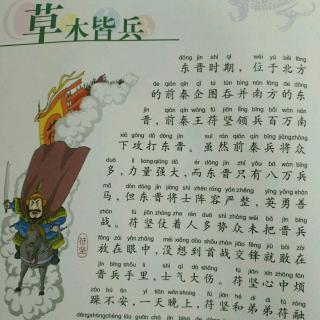 草木皆兵
dōng jìn shí qī wèi yú běi fāng
东晋时期，位于北方
de qián qín qǐ tú tūn bìng nán fāng de dōng
的前秦企图吞并南方的东
jìn qián qín wáng fú jiān lǐng bīng bǎi wàn nán
晋，前秦王苻坚领兵百万南
xià gōng dǎ dōng jìn suī rán qián qín bīng jiàng zhòng
下攻打东晋。虽然前秦兵将众
duō lì liang qiáng dà ér dōng jìn zhǐ yǒu bā wàn bīng
多，力量强大，而东晋只有八万兵
mǎ dàn dōng jìn jiàng shì zhèn róng yán zhěng yīng yǒng shàn
马，但东晋将士阵容严整，英勇善
zhàn fú jiān zhàng zhe rén duō shì zhòng wèi bǎ jìn bīng
战。苻坚仗着人多势众未把晋兵
fàng zài yǎn zhōng méi xiǎng dào shǒu zhàn jiāo fēng jiù bài zài
放在眼中，没想到首战交锋就败在
jìn bīng shǒu lǐ shì qì dà shāng fú jiān xīn zhōng fán
晋兵手里，士气大伤。苻坚心中烦
zào bù ān yì tiān wǎn shang fú jiān hé dì di fú róng
躁不安，一天晚上，苻坚和弟弟苻融
苻坚